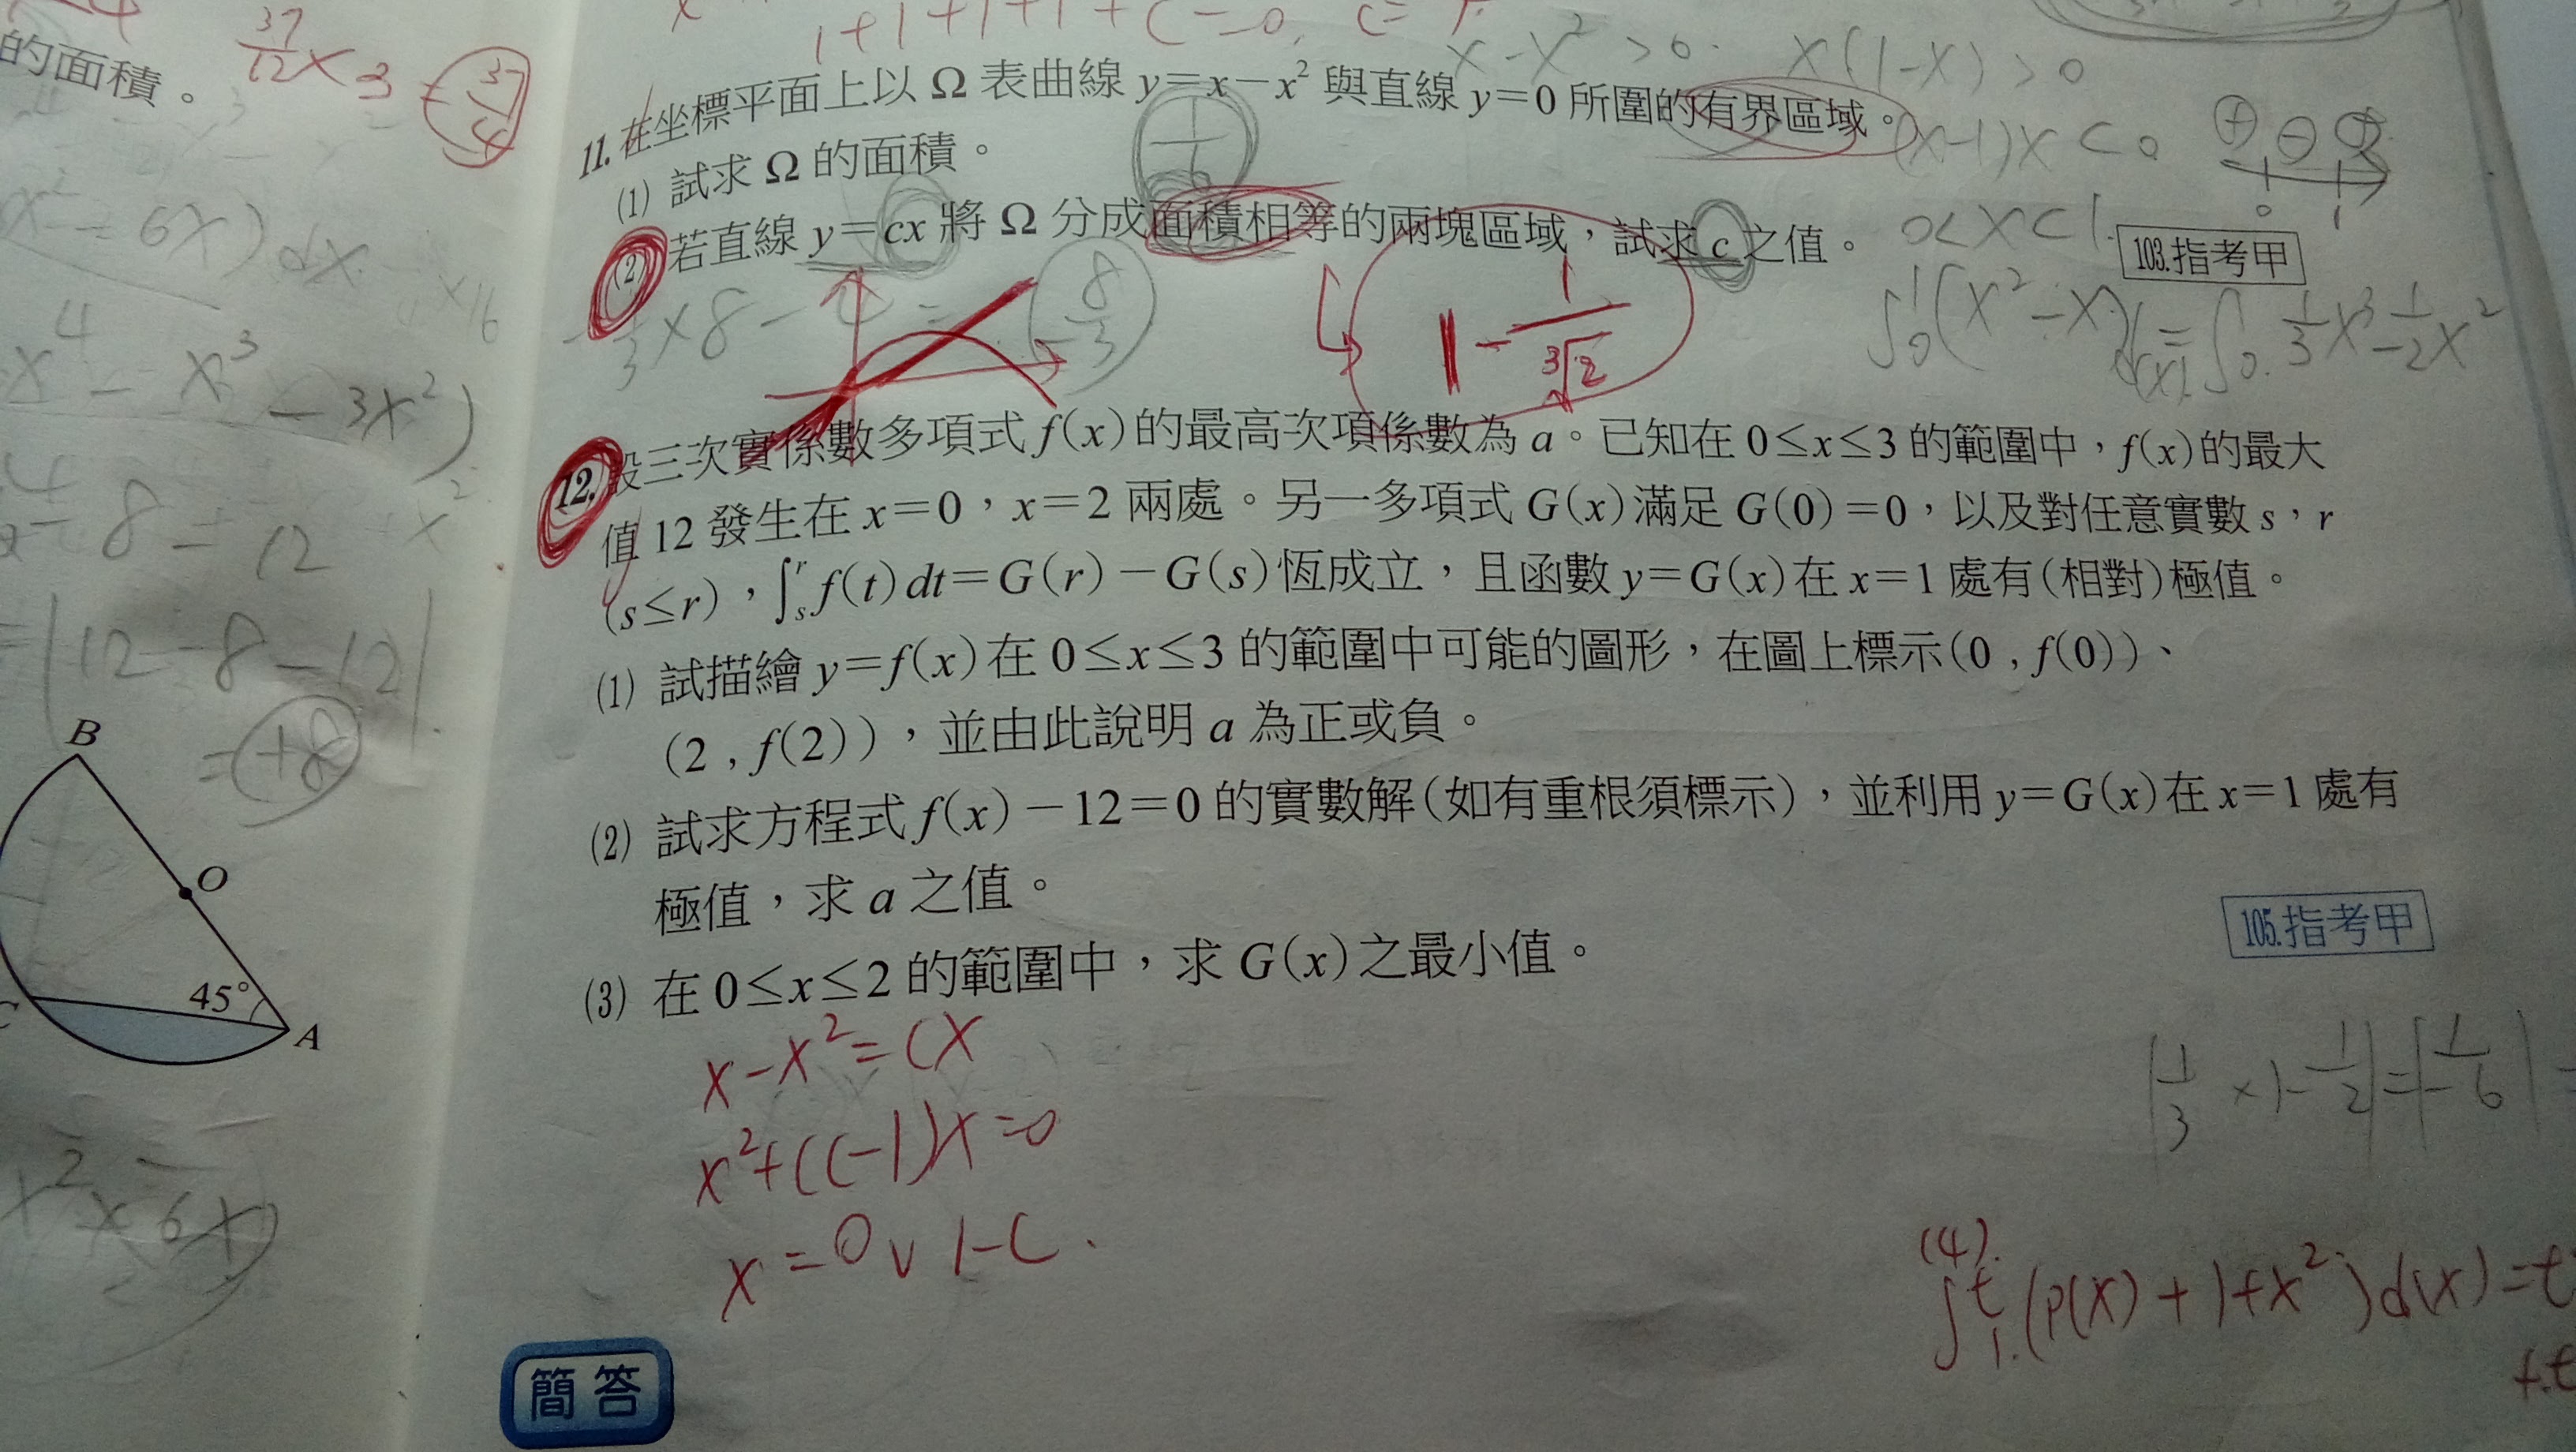 的面積。
37/12 × 3 = 37/4
1+1+1+1+c=0, c=
11. 在坐標平面上以 Ω 表曲線 y=x−x² 與直線 y=0 所圍的有界區域。
x−x²>0. x(1−x)>0
(1) 試求 Ω 的面積。
1/6
(x−1)x<0
(2) 若直線 y=cx 將 Ω 分成面積相等的兩塊區域，試求 c 之值。
0<x<1.
0 1
103.指考甲
8/3
1−1/∛2
12. 設三次實係數多項式 f(x) 的最高次項係數為 a。已知在 0≤x≤3 的範圍中，f(x) 的最大
值 12 發生在 x=0，x=2 兩處。另一多項式 G(x) 滿足 G(0)=0，以及對任意實數 s，r
(s≤r)，∫ₛʳ f(t)dt=G(r)−G(s) 恆成立，且函數 y=G(x) 在 x=1 處有(相對)極值。
(1) 試描繪 y=f(x) 在 0≤x≤3 的範圍中可能的圖形，在圖上標示(0 , f(0))、
(2 , f(2))，並由此說明 a 為正或負。
(2) 試求方程式 f(x)−12=0 的實數解(如有重根須標示)，並利用 y=G(x) 在 x=1 處有
極值，求 a 之值。
105.指考甲
(3) 在 0≤x≤2 的範圍中，求 G(x) 之最小值。
x−x²=cx
x²+(c−1)x=0
x=0∨1−c.
|1/3×1−1/2|=|−1/6|=
(4).
∫₁ᵗ(p(x)+1+x²)d(x)=t
簡答
x⁴−x³−3x²)
=|12−8−12|
=+8
B
O
45°
C
A